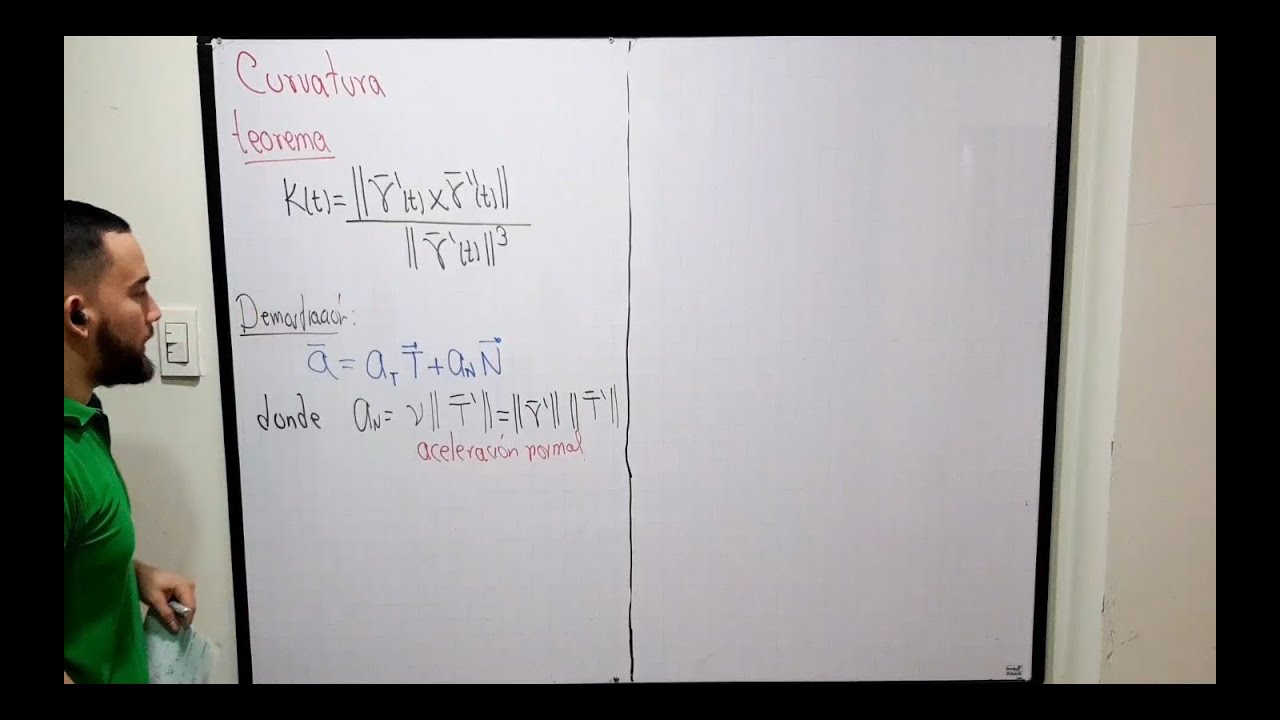 Curvatura
teorema
K(t)= ||r̄'(t) × r̄''(t)|| / ||r̄'(t)||³
Demostración:
ā = a_T T⃗ + a_N N⃗
donde a_N = v || T̄' || = || r̄' || || T̄' ||
aceleración normal